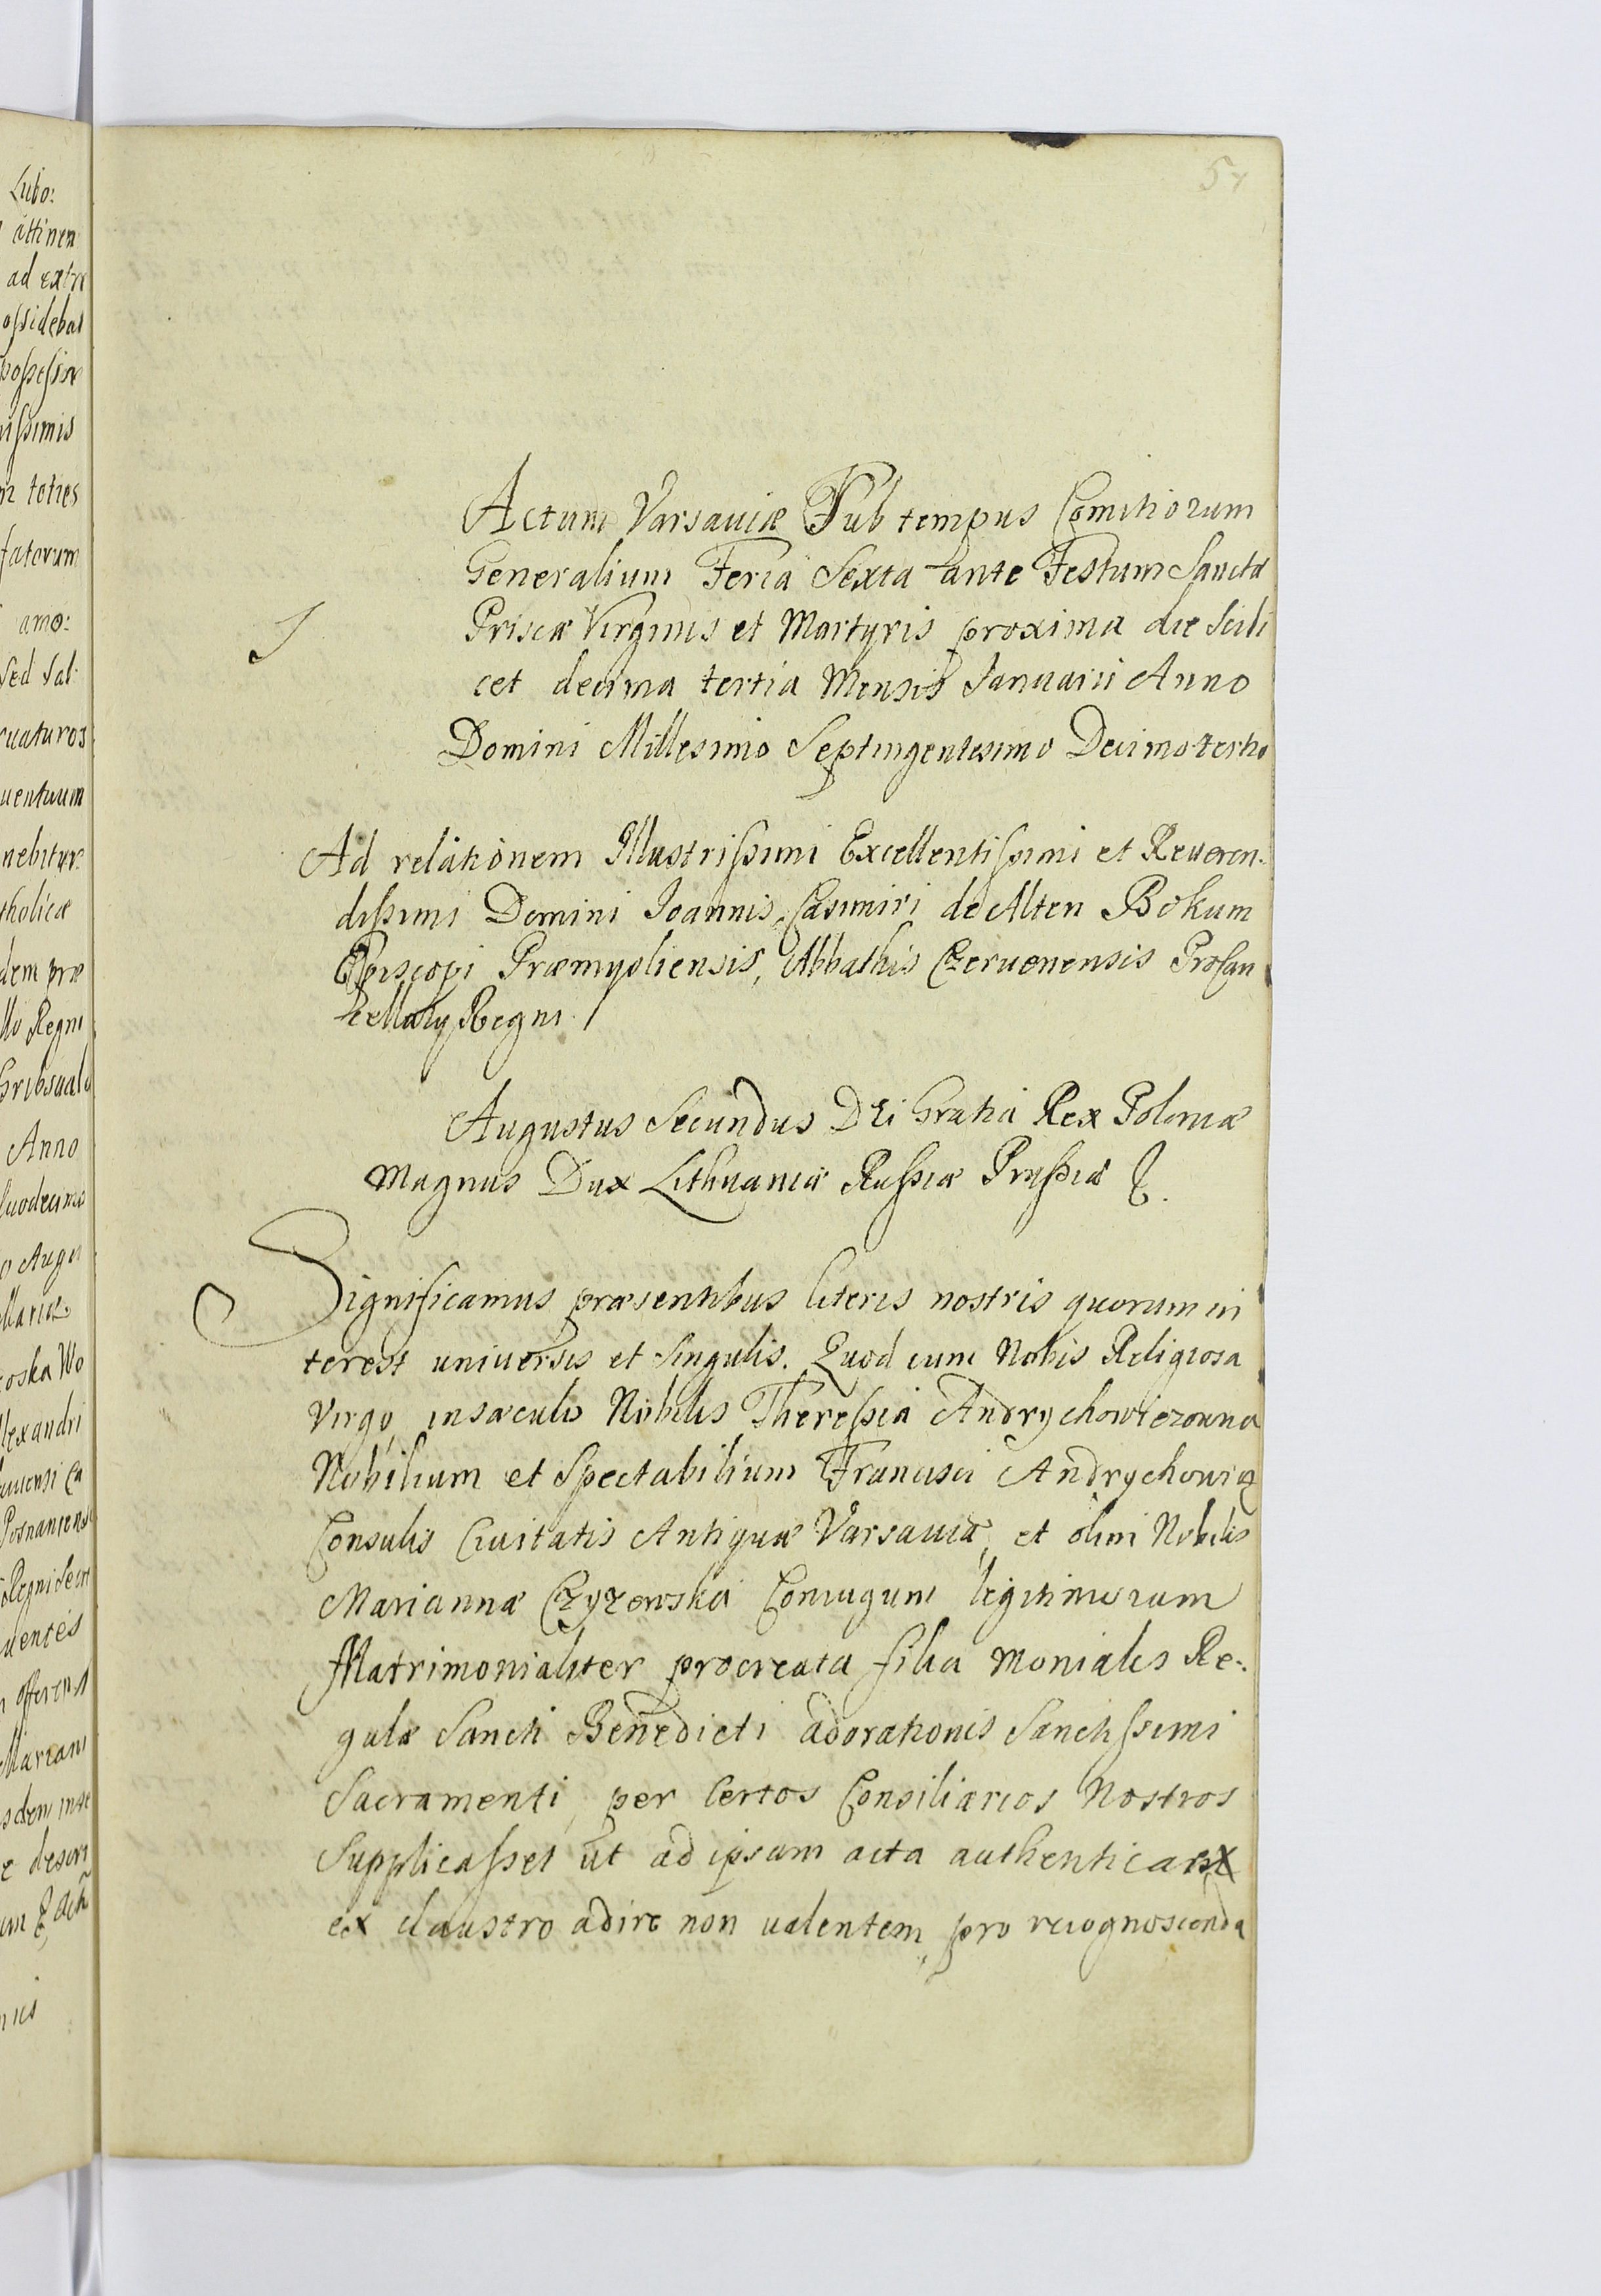 Lubo:
attinen
ad extre
ossidebat
possessio
issimis
m toties
fatorum
amo:
Sed sal:
ruaturos
uentuum
nebitur
tholicæ
dem præ
llo Regni
Anno
luodecimo
o Augu
Mariæ
coska Wo
lexandri
Posnaniens
uentes
n offerent
Mariani
e descri
57
Actum Varsaviæ Sub tempus Comitiorum
Generalium Feria Sexta ante Festum Sanctæ
Priscæ Virginis et Martyris proxima die Scili
cet decima tertia Mensis Januarii Anno
Domini Millesimo Septingentesimo Decimotertio
Ad relationem Illustrissimi Excellentissimi et Reueren-
dissimi Domini Joannis Casimiri de Alten Bokum
Episcopi Præmysliensis, Abbathis Czeruenensis Procan
cellarij Regni
Augustus Secundus Dei Gratia Rex Poloniæ
Magnus Dux Lithuaniæ Russiæ Prussiæ &.
Significamus præsentibus literis nostris quorum in
terest uniuersis et singulis. Quod cum Nobis Religiosa
Virgo, in sæculo Nobilis Theressia Andrychowiczowna
Nobilium et Spectabilium Francisci Andrychowicz
Consulis Ciuitatis Antiquæ Varsauiæ, et olim Nobilis
Mariannæ Czyzewska Coniugum legitimorum
Matrimonialiter procreata filia Monialis Re:
gulæ Sancti Benedicti adorationis Sanctissimi
Sacramenti, per Certos Consiliarios Nostros
Supplicasset ut ad ipsam acta authentica
ex claustro adire non ualentem, pro recognoscenda